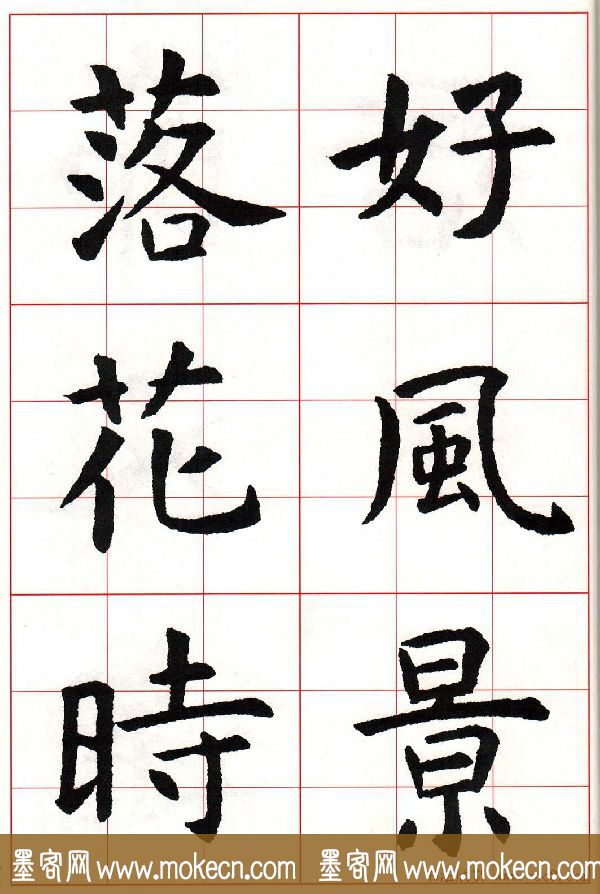 好風景
落花時
墨客网 www.mokecn.com 墨客网 www.mokecn.com